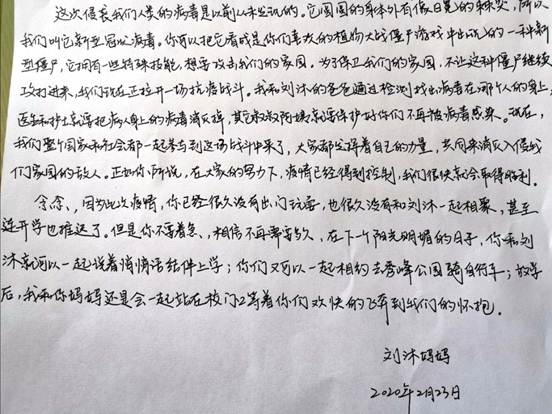 这次侵袭我们人类的病毒是以前从未发现的。它圆圆的身体外有像日冕的刺突，所以
我们叫它新型冠状病毒。你可以把它看成是你们喜欢的植物大战僵尸游戏中出现的一种新
型僵尸，它拥有一些特殊技能，想要攻击我们的家园。为了保卫我们的家园，不让这种僵尸继续
攻打进来，我们现在正拉开一场抗疫战斗。我和刘沐的爸爸通过检测找出病毒在哪个人的身上，
医生和护士负责把病人身上的病毒消灭掉，其它叔叔阿姨负责保护好你们不再被病毒感染。现在，
我们整个国家和社会都一起参与到这场战斗中来了，大家都发挥着自己的力量，共同来消灭入侵我
们家园的敌人。正如你所说，在大家的努力下，疫情已经得到控制，我们很快就会取得胜利。
念念，因为此次疫情，你已经很久没有出门玩耍，也很久没有和刘沐一起相聚，甚至
连开学也推迟了。但是你不要着急，相信不再需要多久，在下一个阳光明媚的日子，你和刘
沐就可以一起说着悄悄话结伴上学；你们又可以一起相约去秀峰公园骑自行车；放学
后，我和你妈妈还是会一起站在校门口等着你们欢快的飞奔到我们的怀抱。
刘沐妈妈
2020年2月23日